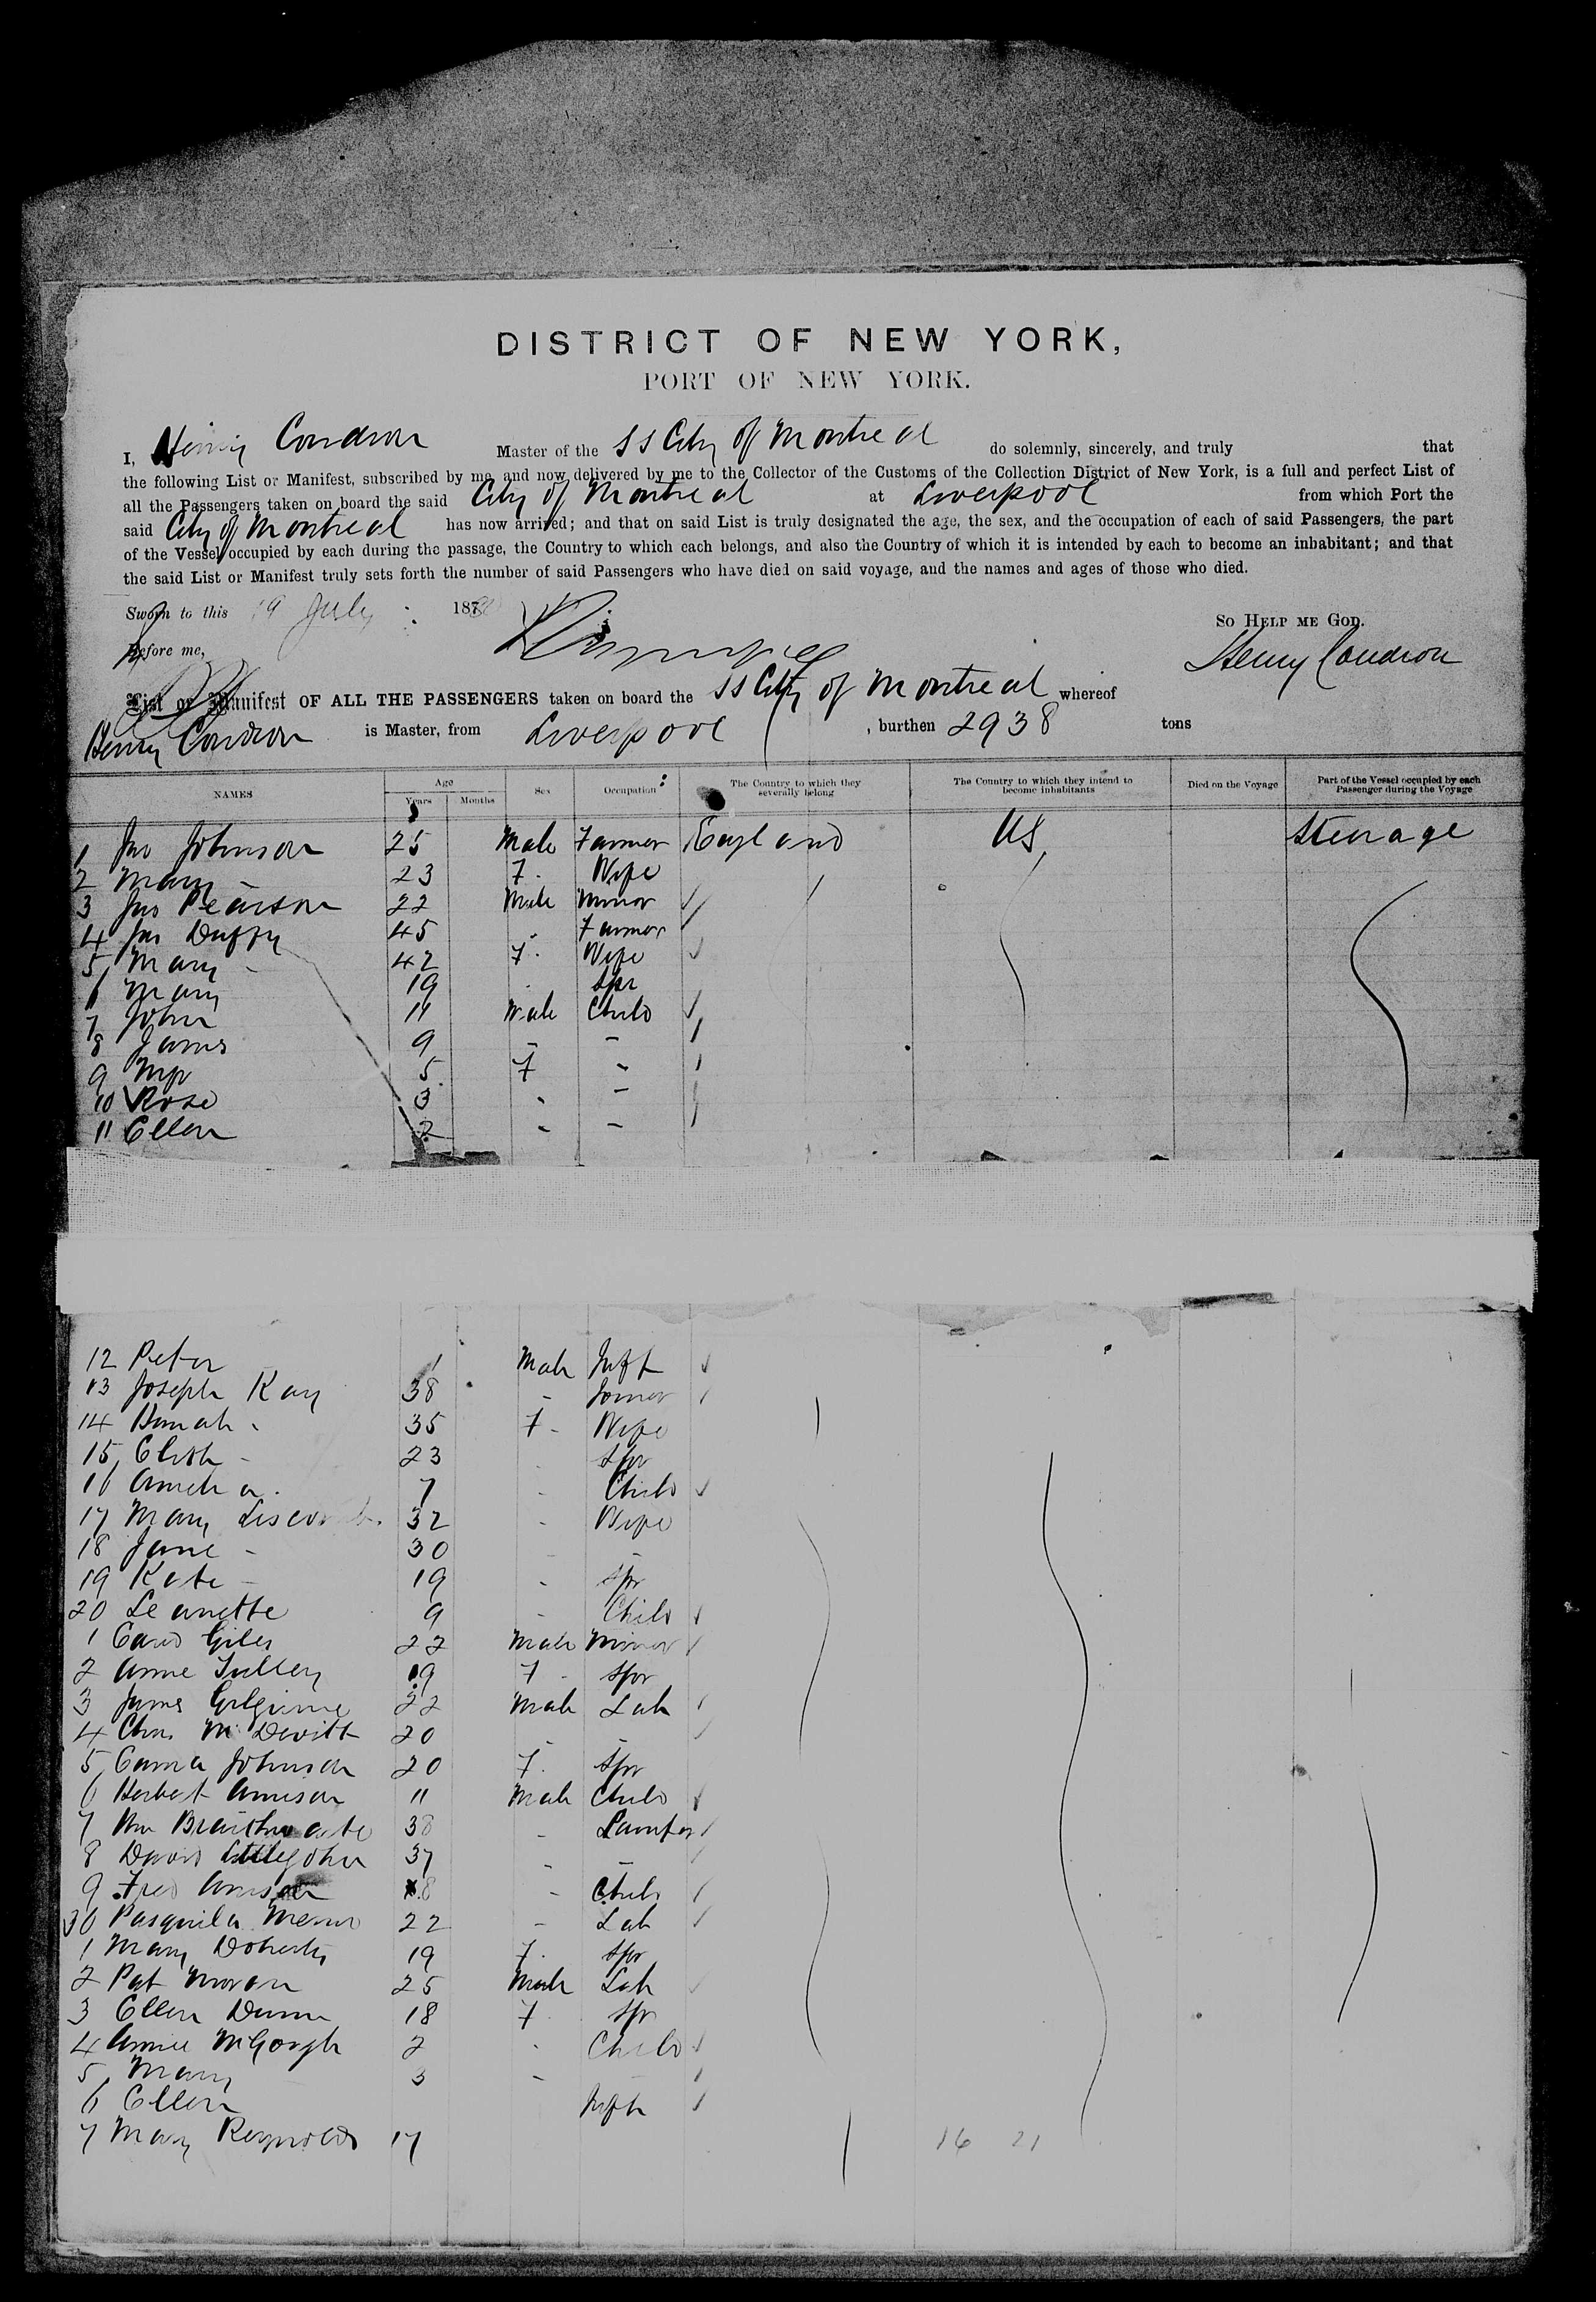 DISTRICT OF NEW YORK,
PORT OF NEW YORK.
I, Henry Condron Master of the SS City of Montreal do solemnly, sincerely, and truly that
the following List or Manifest, subscribed by me, and now delivered by me to the Collector of the Customs of the Collection District of New York, is a full and perfect List of
all the Passengers taken on board the said City of Montreal at Liverpool from which Port the
said City of Montreal has now arrived; and that on said List is truly designated the age, the sex, and the occupation of each of said Passengers, the part
of the Vessel occupied by each during the passage, the Country to which each belongs, and also the Country of which it is intended by each to become an inhabitant; and that
the said List or Manifest truly sets forth the number of said Passengers who have died on said voyage, and the names and ages of those who died.
Sworn to this 19 July 187
So HELP ME GOD.
Before me,
Henry Condron
List or Manifest OF ALL THE PASSENGERS taken on board the SS City of Montreal whereof
Henry Condron is Master, from Liverpool, burthen 2938 tons
NAMES Age Years Months Sex Occupation The Country to which they severally belong The Country to which they intend to become inhabitants Died on the Voyage Part of the Vessel occupied by each Passenger during the Voyage
1 Jno Johnson 25 Male Farmer England US Steerage
2 Mary - 23 F. Wife
3 Jno Pearson 22 Male Minor
4 Jno Duffy 45 - Farmer
5 Mary - 42 F. Wife
6 Mary 19 Spr
7 John 11 Male Child
8 James 9 - -
9 5 F -
10 Rose 3 - -
11 Ellen 2 - -
12 Peter 1 Male Inft
13 Joseph Kay 38 - Joiner
14 Hanah - 35 F - Wife
15 Elizth - 23 - Spr
16 Amelia - 7 - Child
17 Mary 32 - Wife
18 Jane - 30 - -
19 Kate - 19 - Spr
20 Leanette 9 - Child
1 Giles 22 Male Minor
2 Anne Tulley 19 F - Spr
3 James 22 Male Lab
4 Chas McDevitt 20 - -
5 Emma Johnson 20 F. Spr
6 Herbert Amison 11 Male Child
7 Wm Braithwaite 38 -
8 David Littlejohn 37 - -
9 Fred Amison 8 - Child
30 Pasquila 22 - Lab
1 Mary Doherty 19 F. Spr
2 Pat Moran 25 Male Lab
3 Ellen Dunn 18 F Spr
4 Annie McGough 2 - Child
5 Mary 3 - -
6 Ellen Inft
7 Mary Reynolds 17
16 21